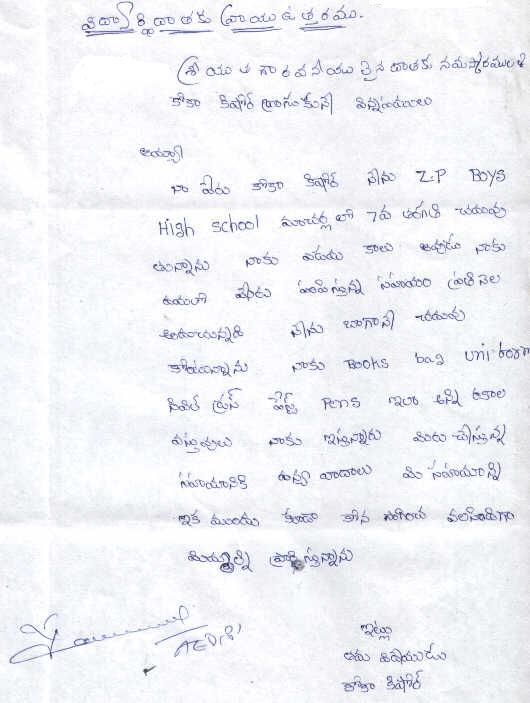 విద్యార్థి దాతకు వ్రాయు ఉత్తరము.
శ్రీయుత గౌరవనీయులైన దాతకు నమస్కారములతో
కోకా కిషోర్ వ్రాసుకునే విన్నపములు
అయ్యా
నా పేరు కోకా కిషోర్ నేను Z.P BOYS
High school మాచర్ల లో 7వ తరగతి చదువు
తున్నాను నాకు కాలు నాకు
మీరు పంపిస్తున్న సహాయం ప్రతి నెల
అందుచున్నది నేను బాగానే చదువు
కోచున్నాను నాకు BOOKS bag uniform
పేస్ట్ Pens ఇలా అన్ని రకాల
వస్తువులు నాకు ఇస్తున్నారు మీరు చేస్తున్న
సహాయానికి ధన్యవాదాలు మీ సహాయాన్ని
ఇక ముందు కూడా కొనసాగించ వలసిందిగా
మిమ్మల్ని ప్రార్థిస్తున్నాను
ఇట్లు
తమ విధేయుడు
కోకా కిషోర్